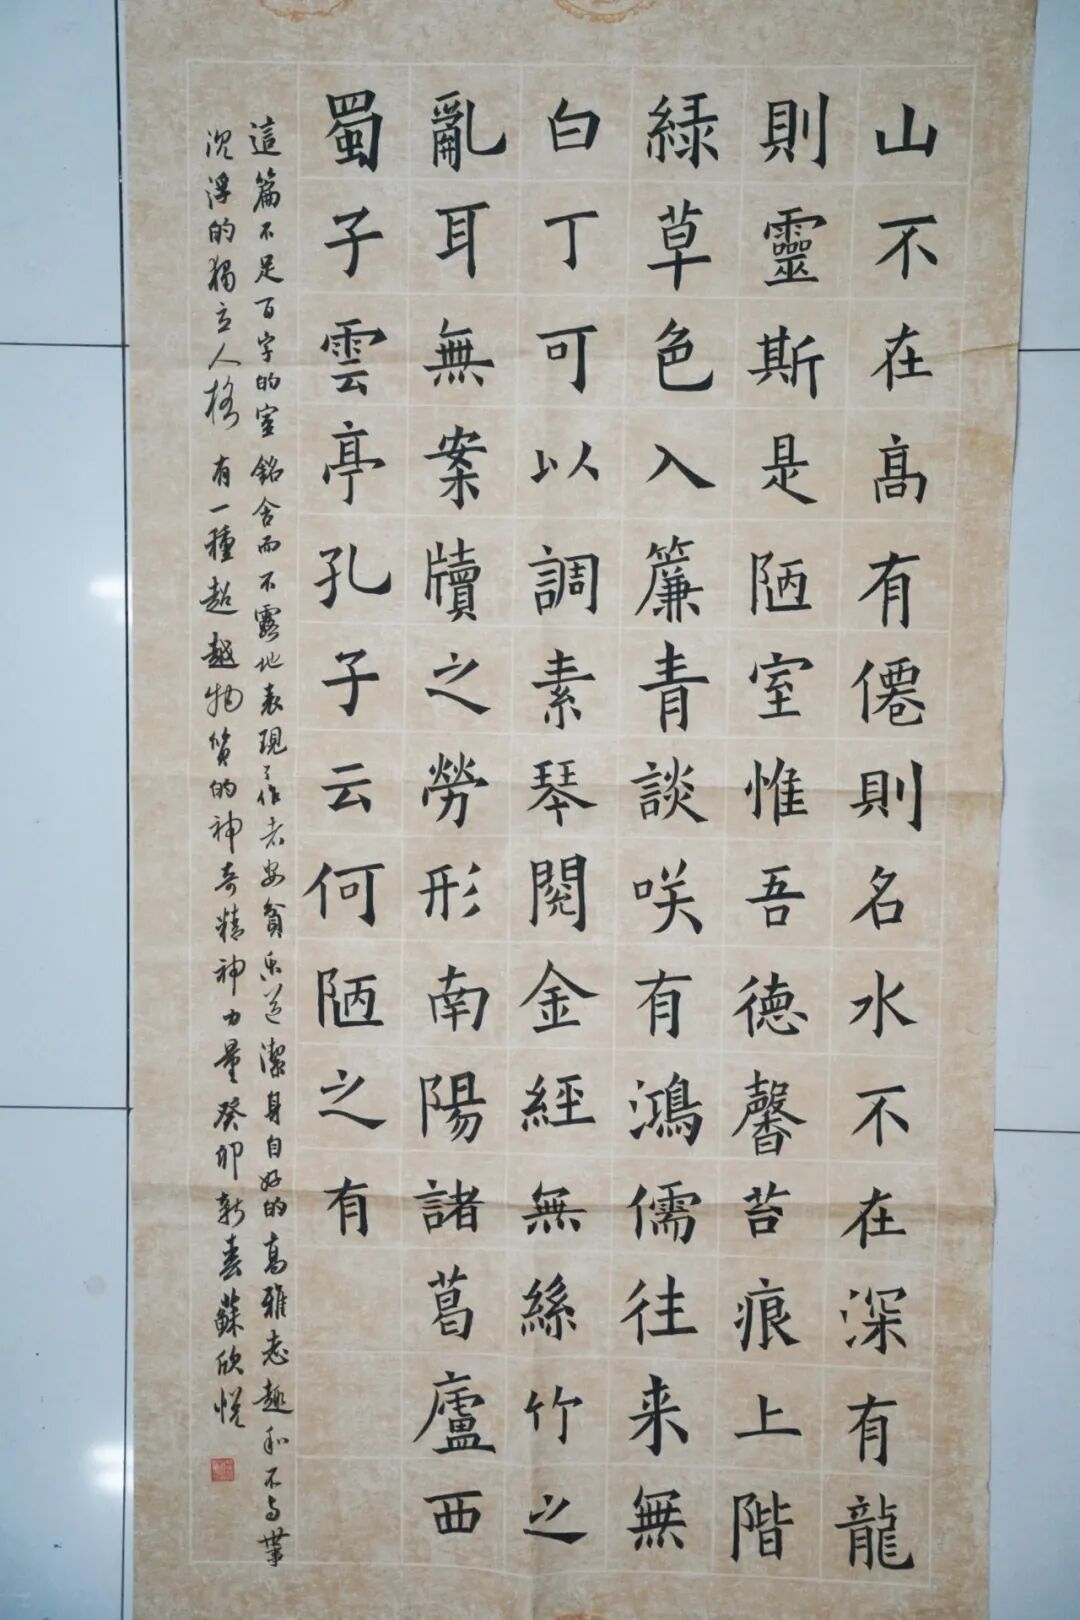 山不在高有僊則名水不在深有龍
則靈斯是陋室惟吾德馨苔痕上階
緑草色入簾青談咲有鴻儒往来無
白丁可以調素琴閱金經無絲竹之
亂耳無案牘之勞形南陽諸葛廬西
蜀子雲亭孔子云何陋之有
這篇不足百字的室銘含而不露地表現了作者安貧樂道潔身自好的高雅志趣和不与世事
沉浮的獨立人格有一種超越物質的神奇精神力量癸卯新春蘇欣悦